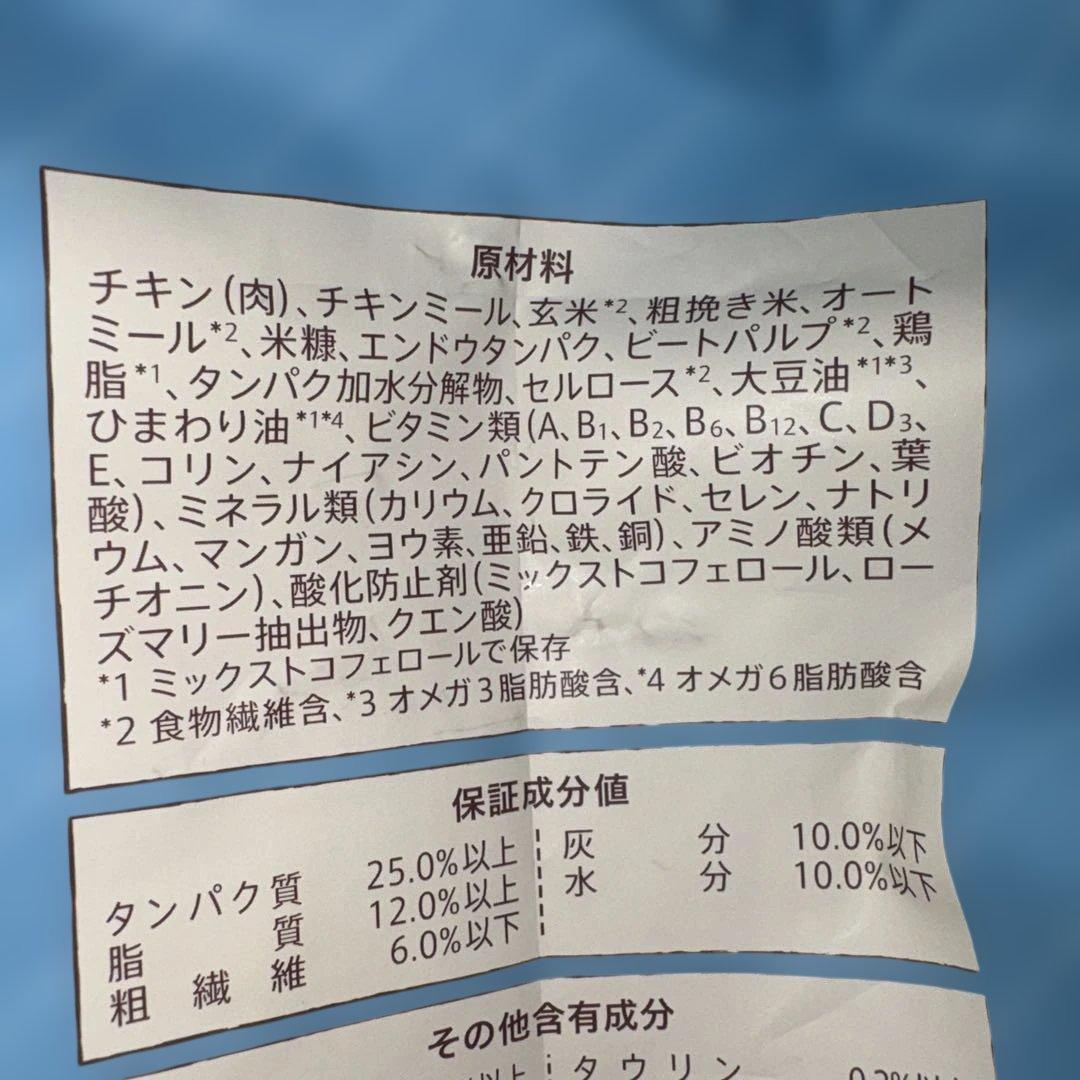 原材料
チキン(肉)、チキンミール、玄米*2、粗挽き米、オート
ミール*2、米糠、エンドウタンパク、ビートパルプ*2、鶏
脂*1、タンパク加水分解物、セルロース*2、大豆油*1*3、
ひまわり油*1*4、ビタミン類(A、B1、B2、B6、B12、C、D3、
E、コリン、ナイアシン、パントテン酸、ビオチン、葉
酸)、ミネラル類(カリウム、クロライド、セレン、ナトリ
ウム、マンガン、ヨウ素、亜鉛、鉄、銅)、アミノ酸類(メ
チオニン)、酸化防止剤(ミックストコフェロール、ロー
ズマリー抽出物、クエン酸)
*1 ミックストコフェロールで保存
*2 食物繊維含、*3 オメガ3脂肪酸含、*4 オメガ6脂肪酸含
保証成分値
タンパク質 25.0%以上
脂質 12.0%以上
粗繊維 6.0%以下
灰分 10.0%以下
水分 10.0%以下
その他含有成分
タウリン